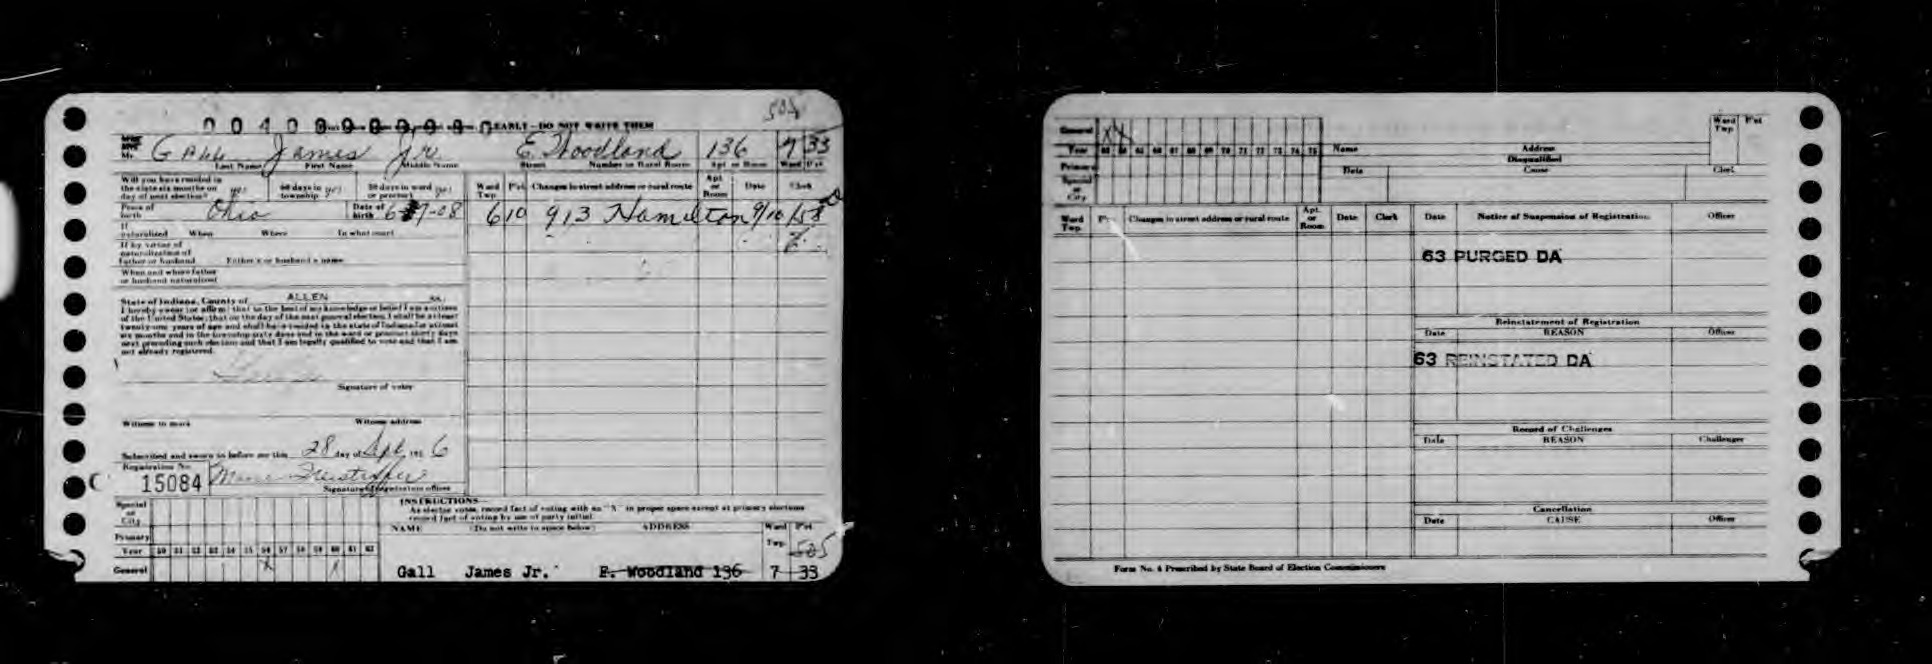 508
EARLY - DO NOT WRITE THEM
Gall James Jr. E. Woodland 136 7 33
Last Name First Name Middle Name Street Number or Rural Route Apt or Room Ward Pct
Will you have resided in the state six months on day of next election? yes 60 days in township? yes 30 days in ward or precinct yes
Ward Twp. Pct. Changes in street address or rural route Apt. or Room Date Clerk
Place of birth Ohio Date of birth 6-7-08
6 10 913 Hamilton 9/10/58
If naturalized When Where In what court
If by virtue of naturalization of father or husband Father's or husband's name
When and where father or husband naturalized
State of Indiana, County of ALLEN ss:
I hereby swear (or affirm) that to the best of my knowledge or belief I am a citizen
of the United States; that on the day of the next general election, I shall be at least
twenty-one years of age and shall have resided in the state of Indiana for at least
six months and in the township sixty days and in the ward or precinct thirty days
next preceding such election and that I am legally qualified to vote and that I am
not already registered.
Signature of voter
Witness to mark Witness address
Subscribed and sworn to before me this 28 day of Sept, 195 6
Registration No.
15084
Signature of registration officer
INSTRUCTIONS
As elector votes, record fact of voting with an "X" in proper space except at primary elections
record fact of voting by use of party initial.
Special or City
Primary
NAME (Do not write in space below) ADDRESS Ward Twp. Pct
505
Year 50 51 52 53 54 55 56 57 58 59 60 61 62
General X
Gall James Jr. E. Woodland 136 7 33
General X X
Year 63 64 65 66 67 68 69 70 71 72 73 74 75
Primary
Special or City
Name Address Ward Twp. Pct
Disqualified
Date Cause Clerk
Ward Twp. Pct. Changes in street address or rural route Apt. or Room Date Clerk
Date Notice of Suspension of Registration Officer
63 PURGED DA
Reinstatement of Registration
Date REASON Officer
63 REINSTATED DA
Record of Challenges
Date REASON Challenger
Cancellation
Date CAUSE Officer
Form No. 4 Prescribed by State Board of Election Commissioners